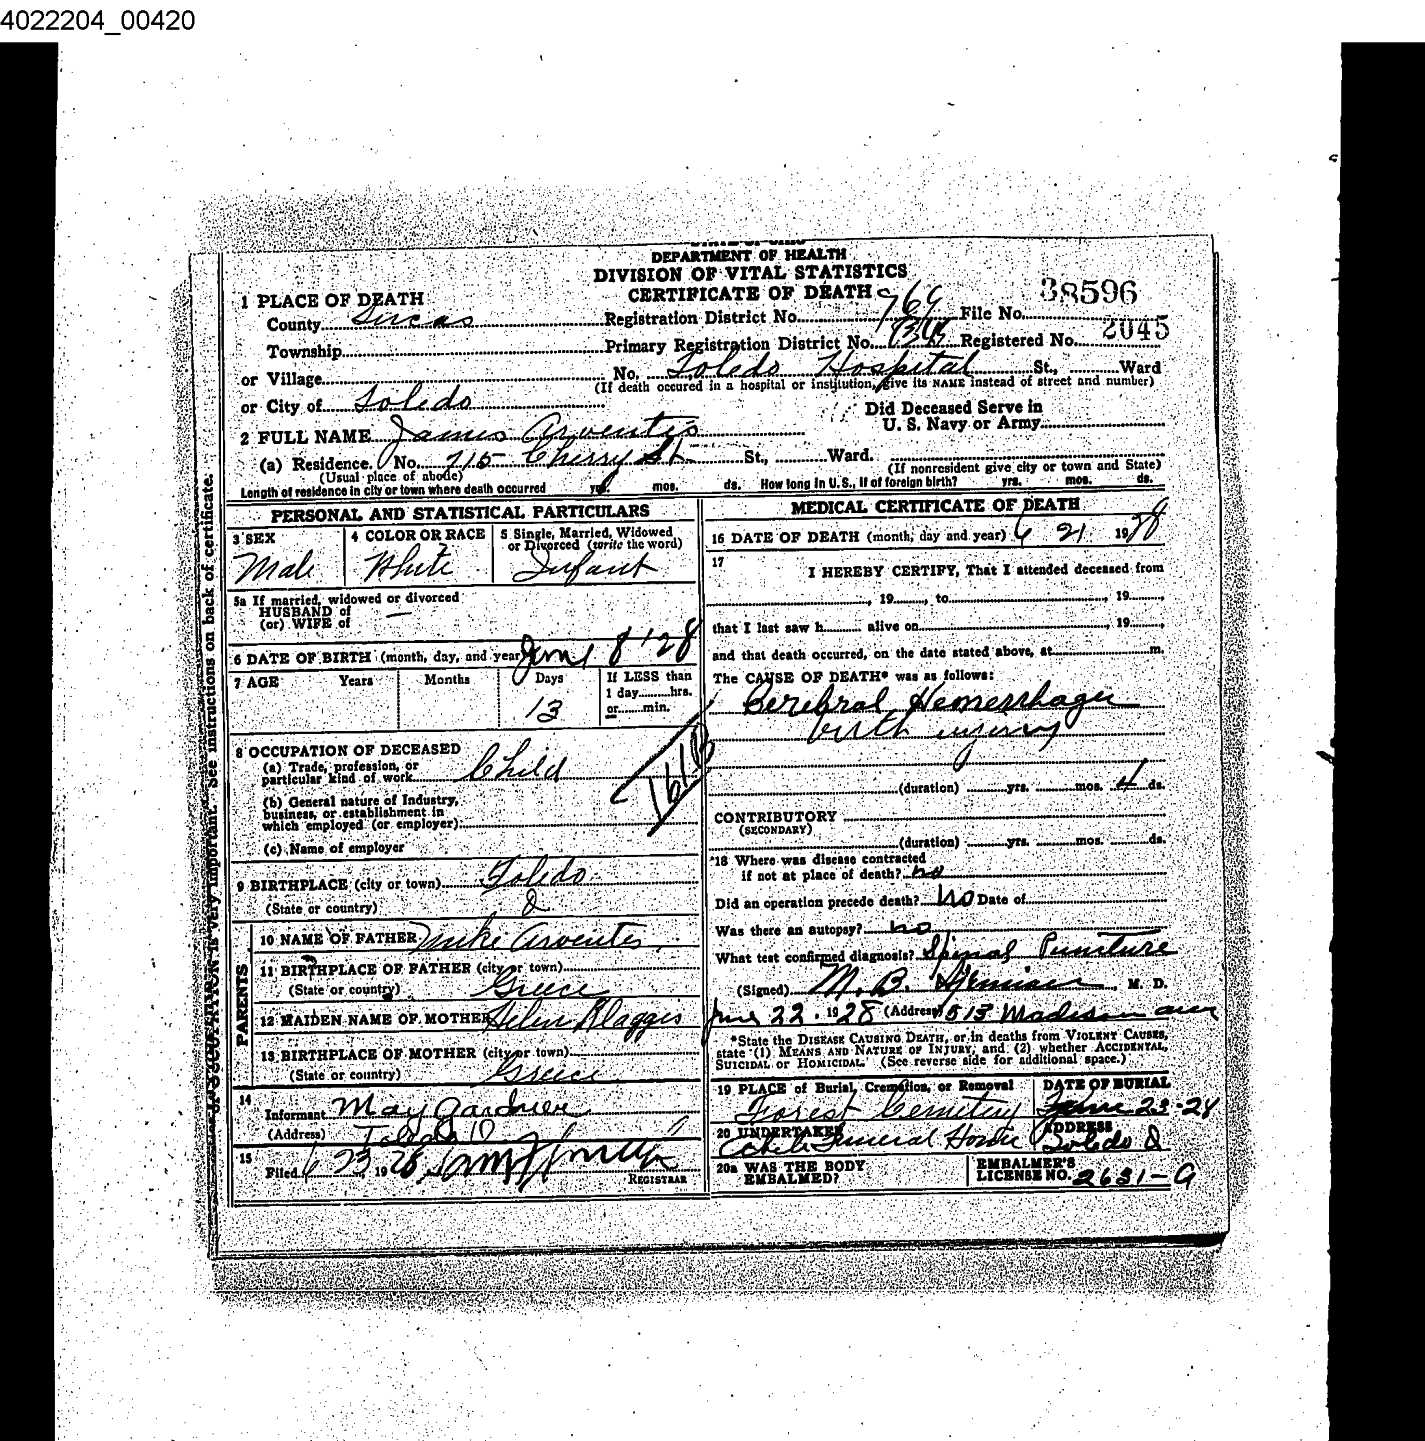 4022204_00420
DEPARTMENT OF HEALTH
DIVISION OF VITAL STATISTICS
CERTIFICATE OF DEATH
38596
1 PLACE OF DEATH
County Lucas Registration District No. 769 File No.
Township Primary Registration District No. Registered No. 2045
or Village No. Toledo Hospital St., Ward
(If death occured in a hospital or institution, give its NAME instead of street and number)
or City of Toledo
Did Deceased Serve in
U. S. Navy or Army
2 FULL NAME James Arventis
(a) Residence. No. 715 Cherry St. St., Ward.
(Usual place of abode) (If nonresident give city or town and State)
Length of residence in city or town where death occurred yrs. mos. ds. How long in U.S., if of foreign birth? yrs. mos. ds.
PERSONAL AND STATISTICAL PARTICULARS
3 SEX
Male
4 COLOR OR RACE
White
5 Single, Married, Widowed
or Divorced (write the word)
Infant
5a If married, widowed or divorced
HUSBAND of
(or) WIFE of —
6 DATE OF BIRTH (month, day, and year) June 8 '28
7 AGE Years Months Days If LESS than
1 day hrs.
13 or min.
8 OCCUPATION OF DECEASED
(a) Trade, profession, or
particular kind of work Child
(b) General nature of Industry,
business, or establishment in
which employed (or employer)
(c) Name of employer
9 BIRTHPLACE (city or town) Toledo
(State or country) O
PARENTS
10 NAME OF FATHER Mike Arventes
11 BIRTHPLACE OF FATHER (city or town)
(State or country) Greece
12 MAIDEN NAME OF MOTHER Helen Blagges
13 BIRTHPLACE OF MOTHER (city or town)
(State or country) Greece
14
Informant May Gardner
(Address) Toledo O
15
Filed 6 23 1928
REGISTRAR
MEDICAL CERTIFICATE OF DEATH
16 DATE OF DEATH (month, day and year) 6 21 1928
17
I HEREBY CERTIFY, That I attended deceased from
, 19 , to , 19 ,
that I last saw h alive on , 19 ,
and that death occurred, on the date stated above, at m.
The CAUSE OF DEATH* was as follows:
Cerebral Hemorrhage
birth injury
(duration) yrs. mos. 4 ds.
CONTRIBUTORY
(SECONDARY)
(duration) yrs. mos. ds.
18 Where was disease contracted
if not at place of death? no
Did an operation precede death? No Date of
Was there an autopsy? no
What test confirmed diagnosis? Spinal Puncture
(Signed) M. B. , M. D.
June 22 . 1928 (Address) 513 Madison ave
*State the DISEASE CAUSING DEATH, or in deaths from VIOLENT CAUSES,
state (1) MEANS AND NATURE OF INJURY, and (2) whether ACCIDENTAL,
SUICIDAL or HOMICIDAL. (See reverse side for additional space.)
19 PLACE of Burial, Cremation, or Removal DATE OF BURIAL
Forest Cemetery June 23-28
20 UNDERTAKER ADDRESS
Funeral Home Toledo O
20a WAS THE BODY
EMBALMED?
EMBALMER'S
LICENSE NO. 2631-A
See instructions on back of certificate.
OCCUPATION is very important.